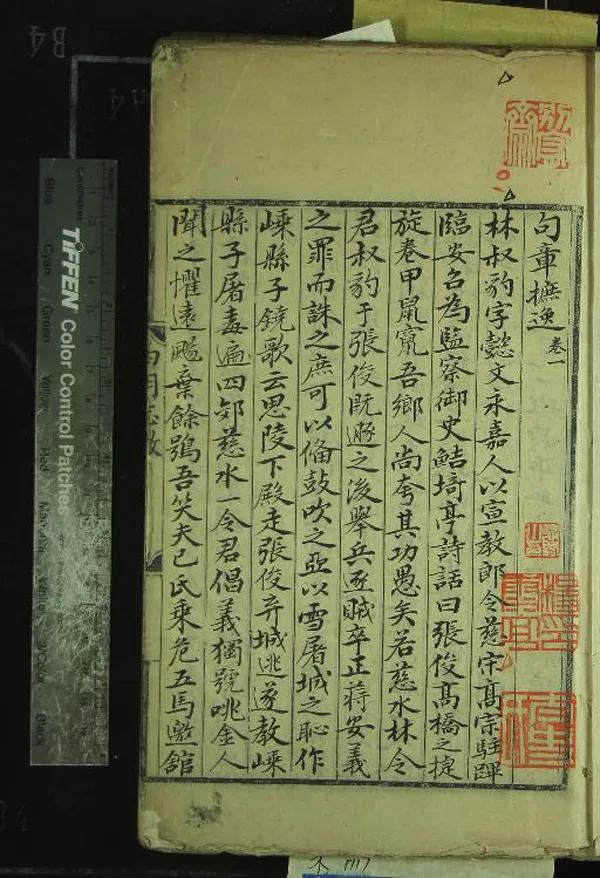 句章摭逸 卷一
林叔豹字懿文永嘉人以宣教郎令慈宋髙宗駐蹕
臨安召為監察御史鮚埼亭詩話曰張俊髙橋之捷
旋卷甲鼠竄吾鄉人尚夸其功愚矣若慈水林令
君叔豹于張俊既遯之後舉兵逐賊卒正蔣安義
之罪而誅之庶可以俻鼓吹之亞以雪屠城之恥作
嵊縣子鐃歌云思陵下殿走張俊弃城逃遂教嵊
縣子屠毒遍四郊慈水一令君倡義獨號咷金人
聞之懼遠颺棄餘鴞吾笑夫己氏乘危五馬邀舘
B4
TIFFEN Color Control Patches
Blue
Cyan
Green
Yellow
Red
Magenta
White
Black